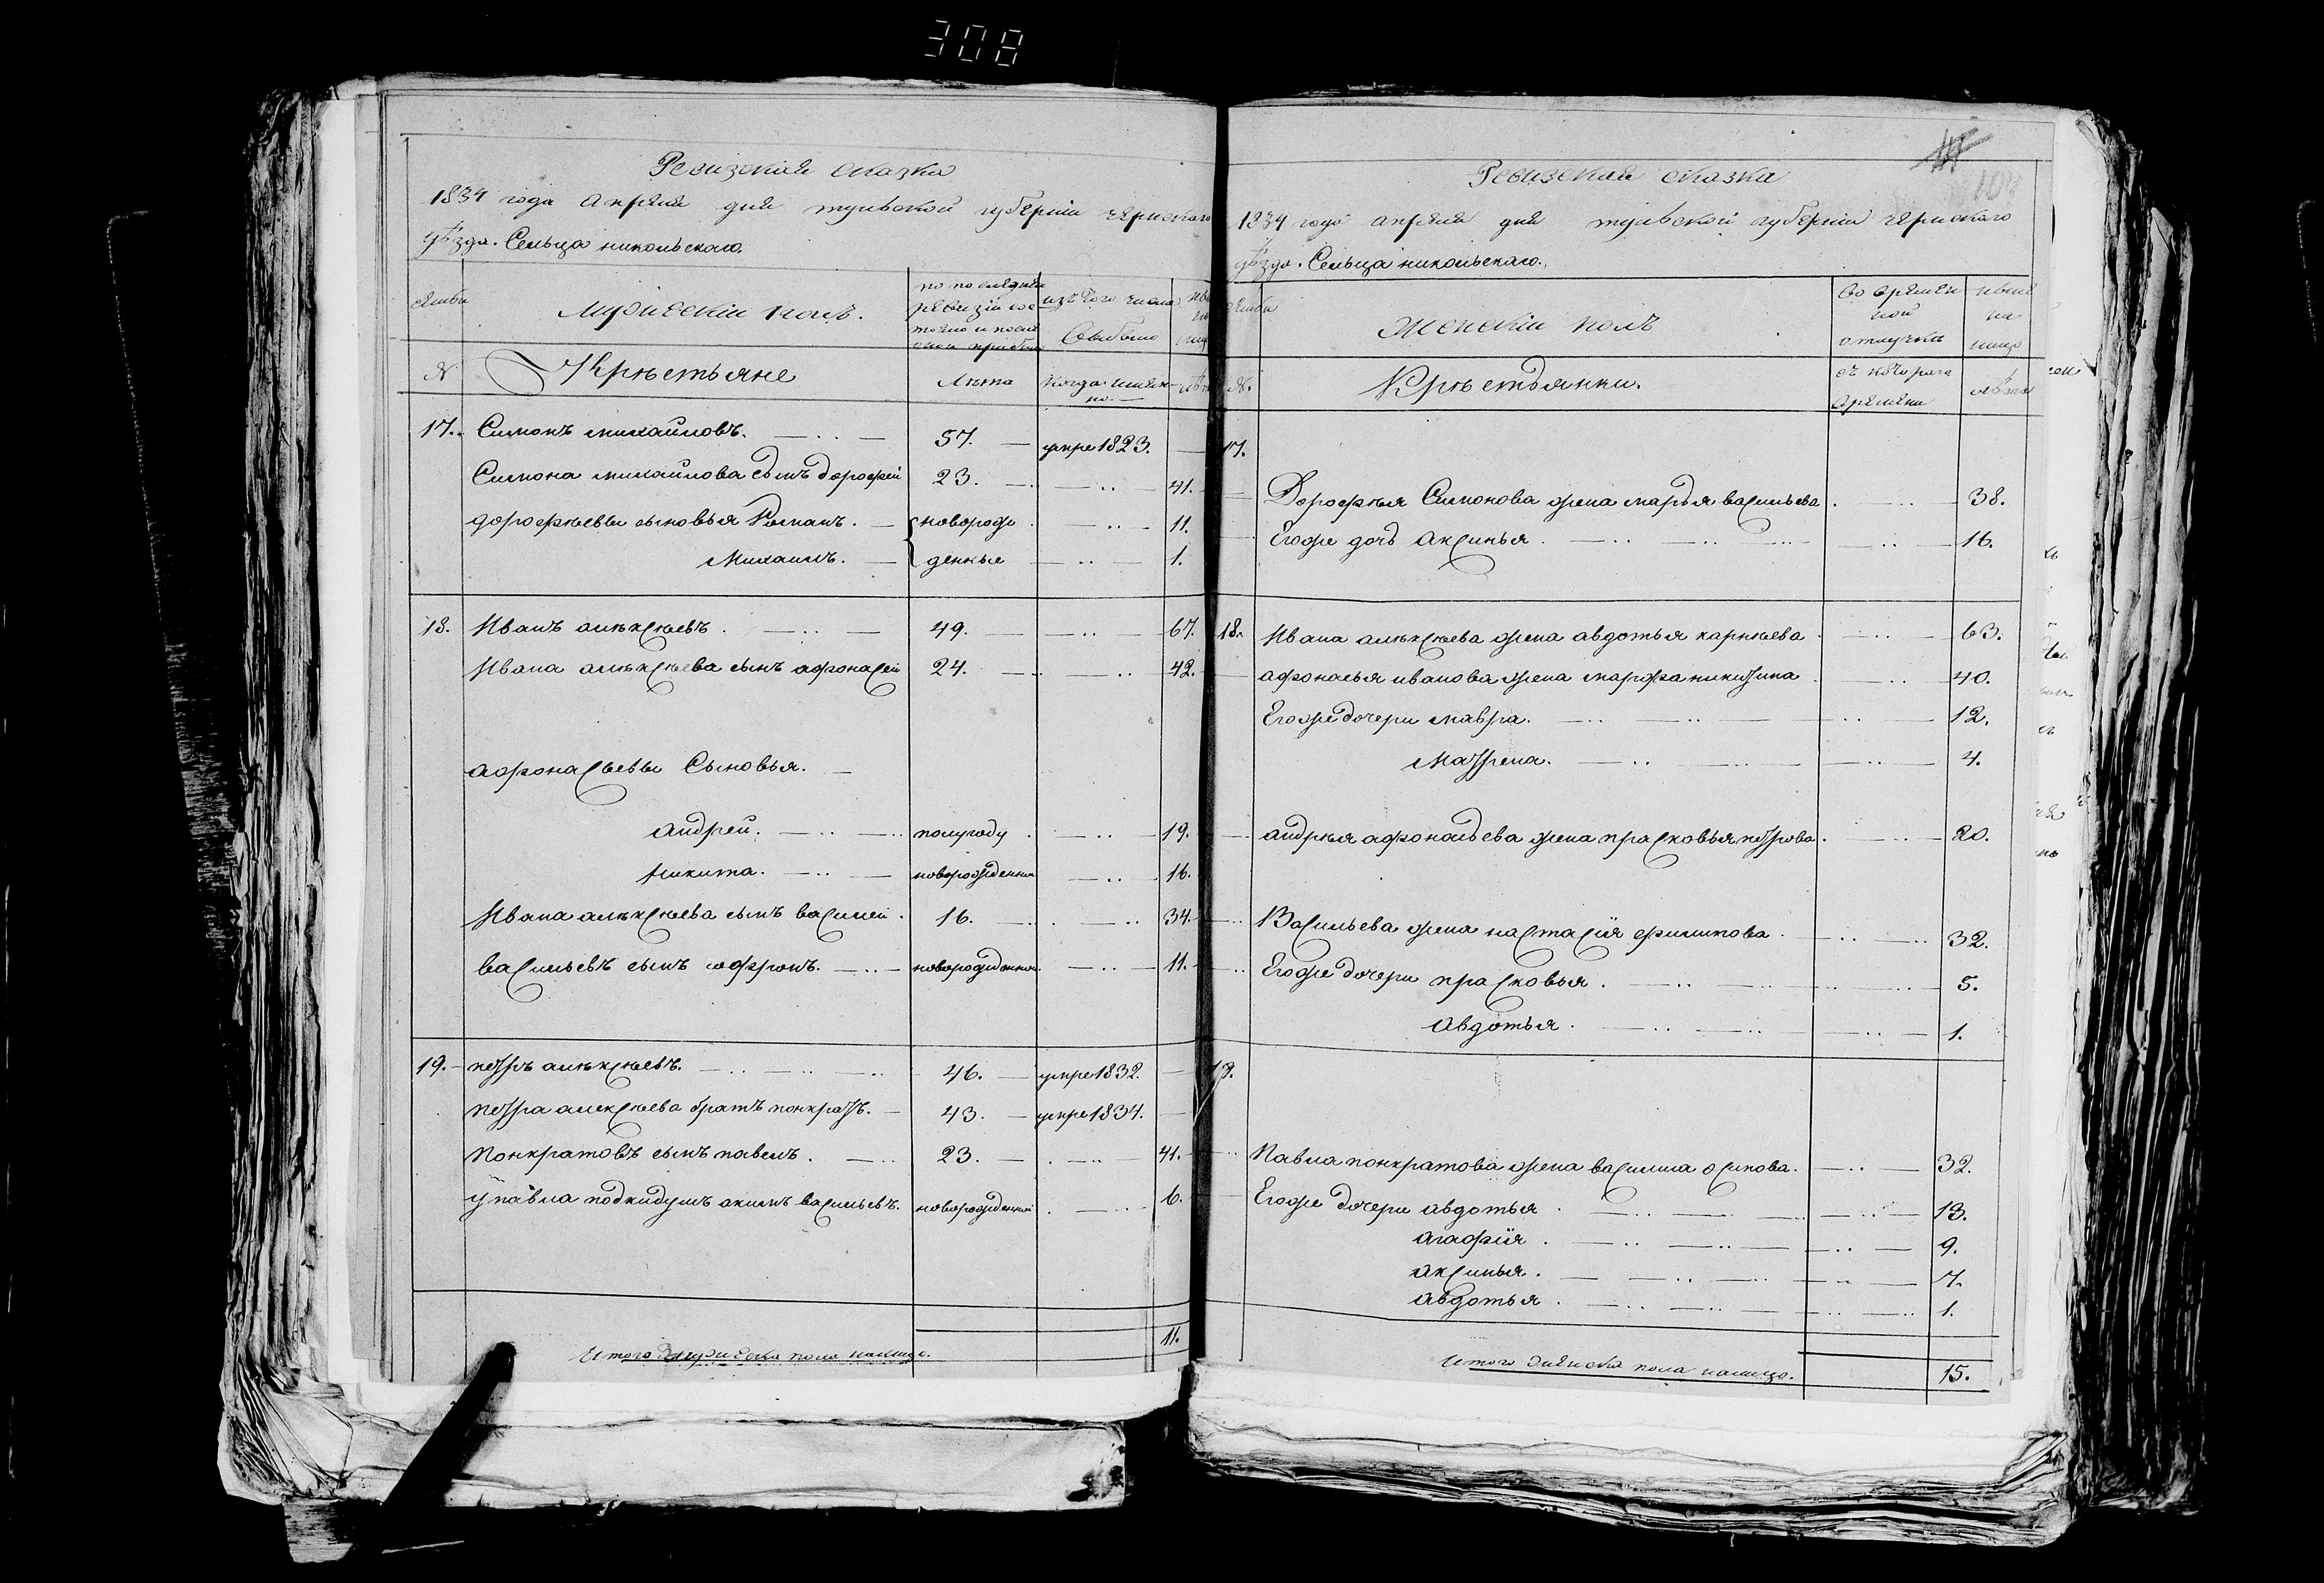 308
Ревизская сказка
1834 года апреля дня тульской губернiи чернскаго
уѣзда. Сельца никольскаго.
мужескiи полъ.
по последней
ревизiи сос
тояло и после
оной прибыло
изъ того числа
Выбыло
№
Крѣстьяне
Лѣта
Когда имян
но.
17. Симонъ михайловъ. 57. умре 1823.
Симона михайлова сынъ дорофей 23. 41.
дорофѣевы сыновья Романъ. новорож 11.
Михаилъ. денные 1.
18. Иванъ алѣксѣевъ. 49. 67.
Ивана алѣксѣева сынъ афонасей 24. 42.
афонасьевы Сыновья.
андрей. полугоду 19.
никита. новорожденной 16.
Ивана алѣксѣева сынъ василей. 16. 34.
васильевъ сынъ софронъ. новорожденной. 11.
19. петръ алѣксѣевъ. 46. умре 1832.
петра алексѣева братъ понкратъ. 43. умре 1834.
понкратовъ сынъ павелъ. 23. 41.
у павла подкидушъ акимъ васильевъ. новорожденной 6.
Итого мужеска пола налицо. 11.
Ревизская сказка
1834 года апреля дня тульской губернiи чернскаго
уѣзда. Сельца никольскаго.
Женскiи полъ
во времян
ной
отлучки
ныне
на
лицо
№.
Крѣстьянки.
съ котораго
времяни
лѣта
17.
Дорофѣя Симонова жена марья васильева. 38.
Егоже дочь аксинья. 16.
18. Ивана алѣксѣева жена авдотья карнѣева 63.
афонасья иванова жена марфа никитина 40.
Егоже дочери мавра. 12.
матрена. 4.
андрѣя афонасьева жена прасковья петрова. 20.
Васильева жена настасiя филипова. 32.
Егоже дочери прасковья. 5.
авдотья. 1.
19.
Павла понкратова жена василиса осипова. 32.
Егоже дочери авдотья. 13.
агафiя. 9.
аксинья. 7.
авдотья. 1.
Итого женска пола налицо. 15.